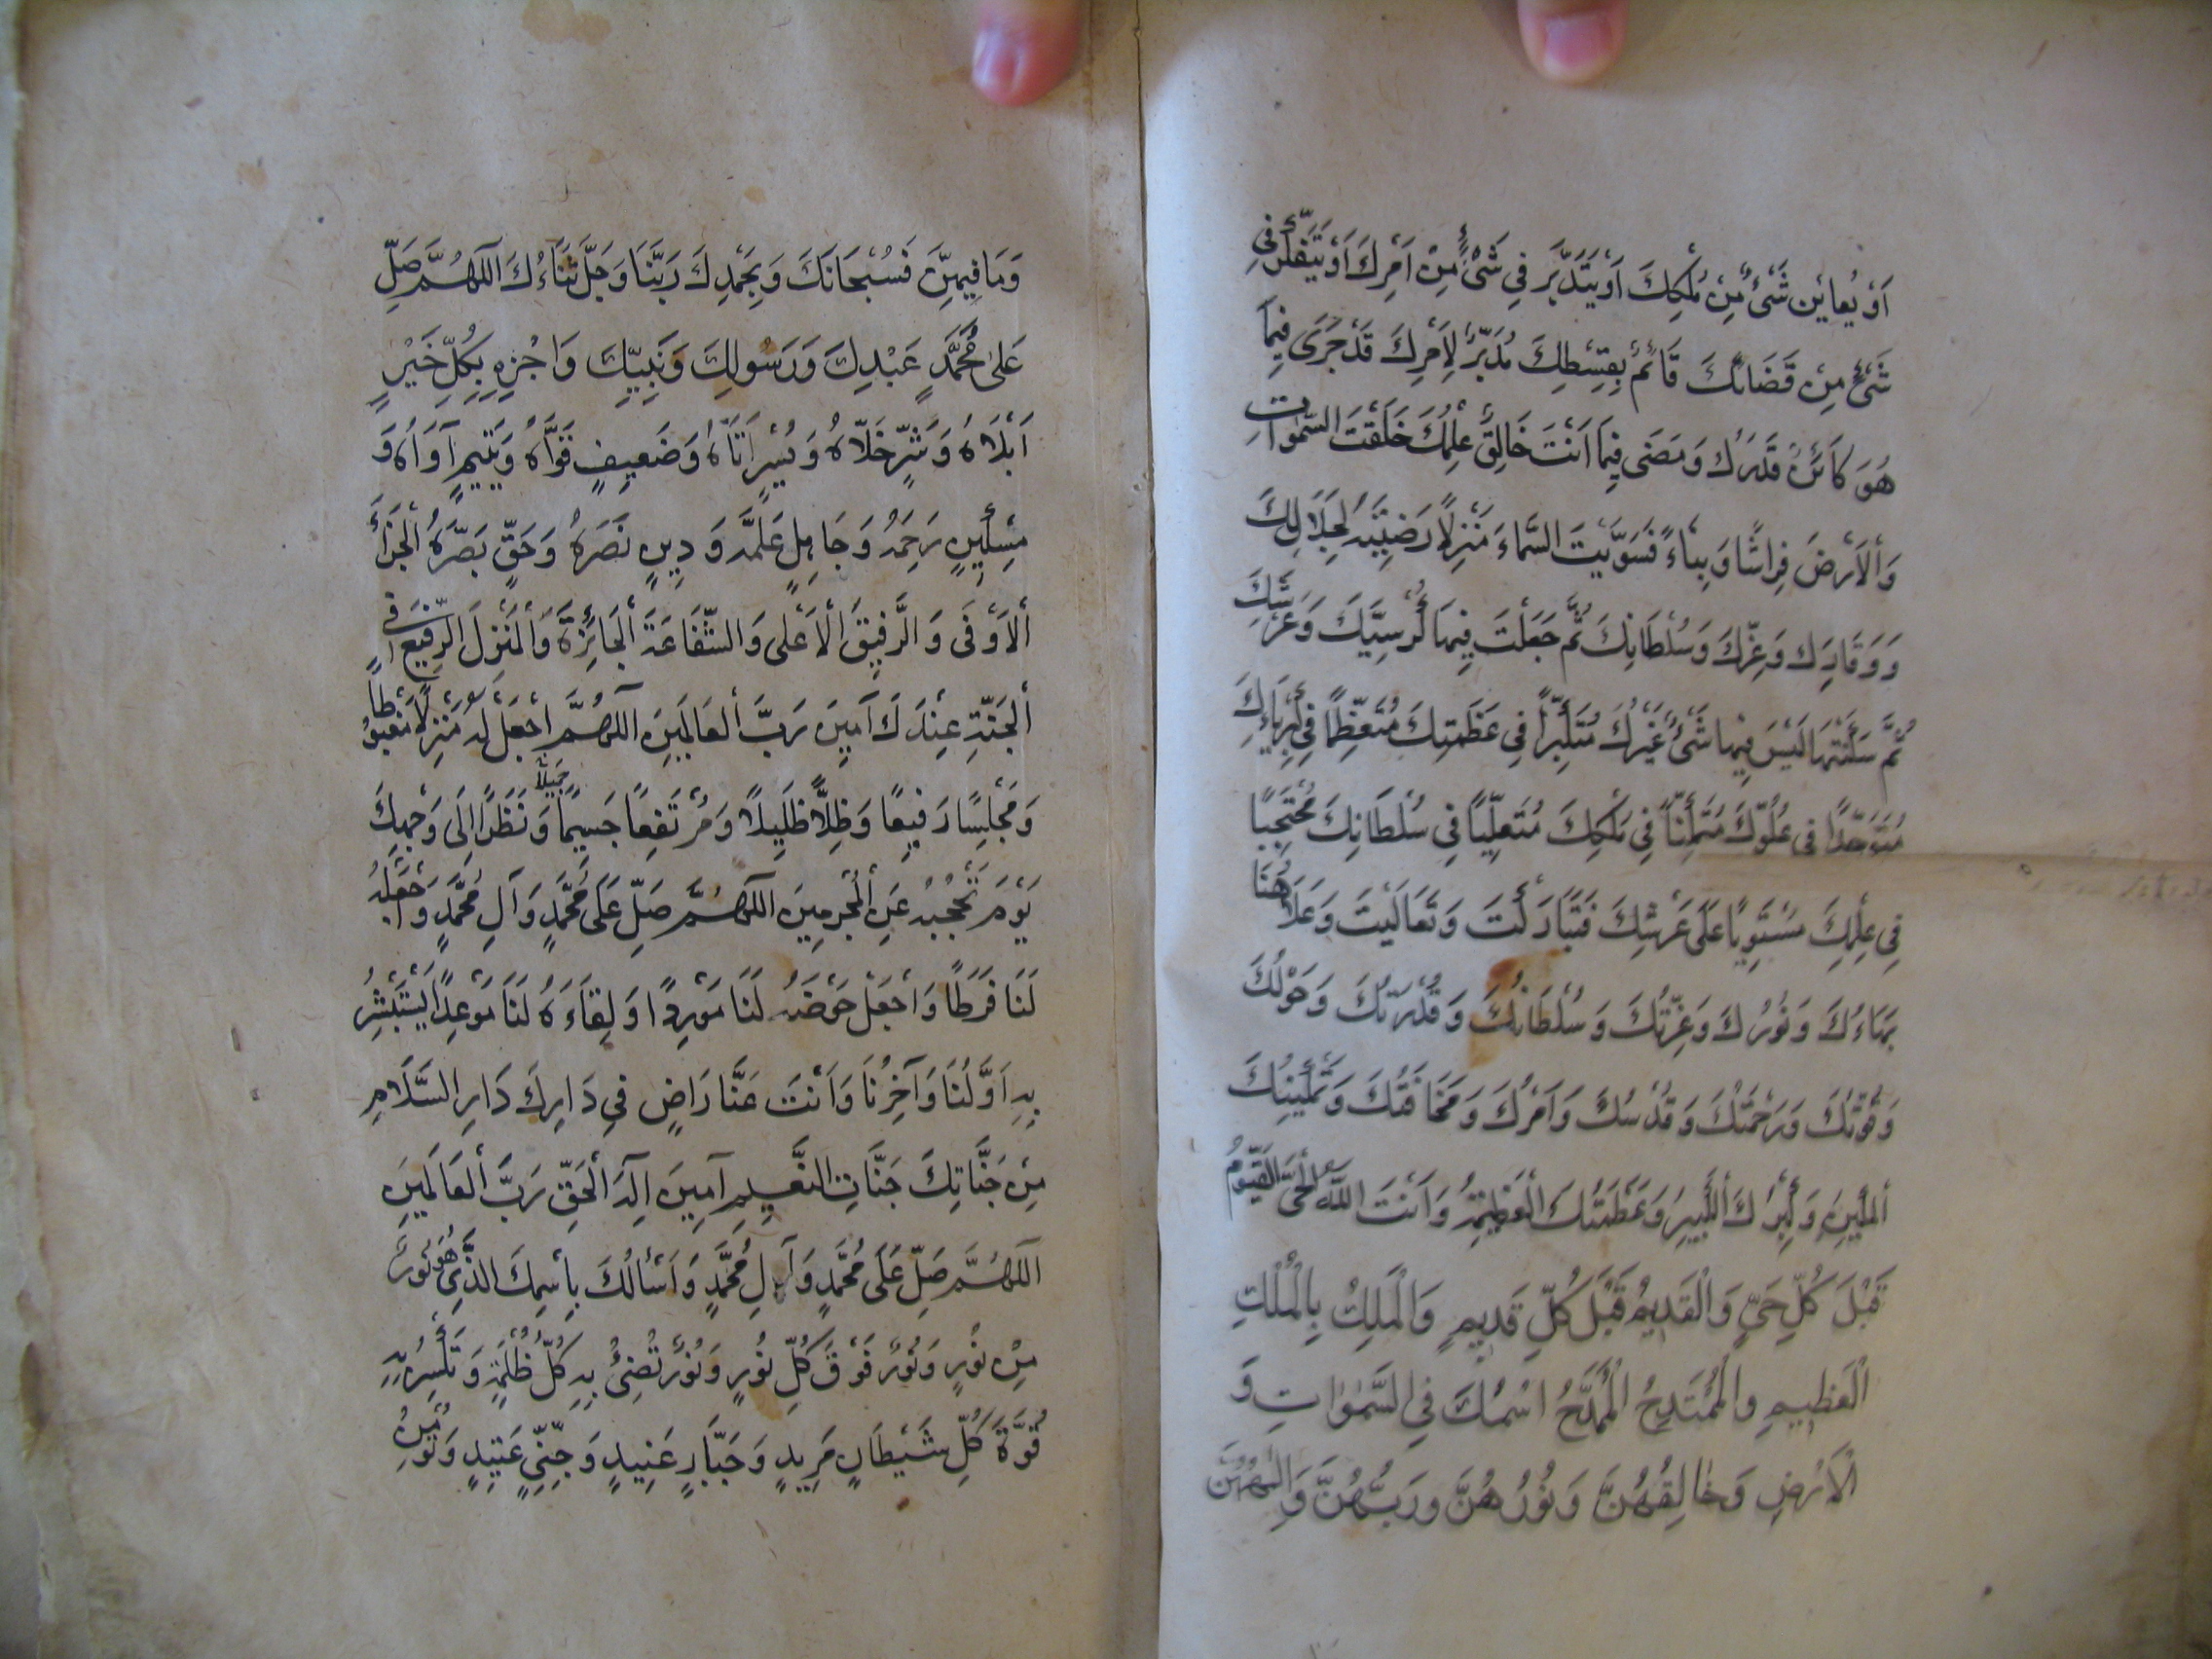 اَوْ يُعايَن شَىْءٌ مِنْ مُلْكِكَ اَوْ يَتَدَبَّر فِي شَىْءٍ مِنْ اَمْرِكَ اَوْ يَتَفَكَّرَ فِي
شَىْءٍ مِنْ قَضَائِكَ قَائِمٌ بِقِسْطِكَ مُدَبِّرٌ لِاَمْرِكَ قَدْ جَرَى فِيمَا
هُوَ كَائِنٌ قَدَرُكَ وَمَضَى فِيمَا اَنْتَ خَالِقٌ عِلْمُكَ خَلَقْتَ السَّمٰوَاتِ
وَالْاَرْضَ فِرَاشًا وَبِنَاءً فَسَوَّيْتَ السَّمَاءَ مَنْزِلًا رَضِيتَهُ لِجَلَالِكَ
وَوَقَارِكَ وَعِزِّكَ وَسُلْطَانِكَ ثُمَّ جَعَلْتَ فِيهَا كُرْسِيَّكَ وَعَرْشَكَ
ثُمَّ سَكَنْتَهَا لَيْسَ فِيهَا شَىْءٌ غَيْرُكَ مُتَكَبِّرًا فِي عَظَمَتِكَ مُتَعَظِّمًا فِي كِبْرِيَائِكَ
مُتَوَحِّدًا فِي عُلُوِّكَ مُتَمَكِّنًا فِي مُلْكِكَ مُتَعَلِّيًا فِي سُلْطَانِكَ مُحْتَجِبًا
فِي عِلْمِكَ مُسْتَوِيًا عَلَى عَرْشِكَ فَتَبَارَكْتَ وَتَعَالَيْتَ وَعَلَا هُنَا
بَهَاءُكَ وَنُورُكَ وَعِزَّتُكَ وَسُلْطَانُكَ وَقُدْرَتُكَ وَحَوْلُكَ
وَقُوَّتُكَ وَرَحْمَتُكَ وَقُدْسُكَ وَاَمْرُكَ وَمَخَافَتُكَ وَتَمْكِينُكَ
الْمَكِينُ وَكِبْرُكَ الْكَبِيرُ وَعَظَمَتُكَ الْعَظِيمَةُ وَاَنْتَ اللهُ الْحَىُّ الْقَيُّومُ
قَبْلَ كُلِّ حَىٍّ وَالْقَدِيمُ قَبْلَ كُلِّ قَدِيمٍ وَالْمَلِكُ بِالْمُلْكِ
الْعَظِيمِ وَالْمُمْتَدِحُ الْمُمَدَّحُ اسْمُكَ فِي السَّمٰوَاتِ وَ
الْاَرْضِ وَخَالِقُهُنَّ وَنُورُهُنَّ وَرَبُّهُنَّ وَاِلٰهُهُنَّ
وَمَا فِيهِنَّ فَسُبْحَانَكَ وَبِحَمْدِكَ رَبَّنَا وَجَلَّ ثَنَاءُكَ اَللّٰهُمَّ صَلِّ
عَلَى مُحَمَّدٍ عَبْدِكَ وَرَسُولِكَ وَنَبِيِّكَ وَاجْزِهِ بِكُلِّ خَيْرٍ
اَبْلَاهُ وَشَرٍّ خَلَّاهُ وَيُسْرٍ اَتَاهُ وَضَعِيفٍ قَوَّاهُ وَيَتِيمٍ آوَاهُ وَ
مِسْكِينٍ رَحِمَهُ وَجَاهِلٍ عَلَّمَهُ وَدِينٍ نَصَرَهُ وَحَقٍّ بَصَّرَهُ الْجَزَاءَ
الْاَوْفَى وَالرَّفِيقَ الْاَعْلَى وَالشَّفَاعَةَ الْجَائِزَةَ وَالْمَنْزِلَ الرَّفِيعَ فِي
الْجَنَّةِ عِنْدَكَ آمِينَ رَبَّ الْعَالَمِينَ اللّٰهُمَّ اجْعَلْ لَهُ مَنْزِلًا مَغْبُوطًا
وَمَجْلِسًا رَفِيعًا وَظِلًّا ظَلِيلًا وَمُرْتَفِعًا جَسِيمًا جَمِيلًا وَنَظَرًا اِلَى وَجْهِكَ
يَوْمَ تَحْجُبُهُ عَنِ الْمُجْرِمِينَ اللّٰهُمَّ صَلِّ عَلَى مُحَمَّدٍ وَآلِ مُحَمَّدٍ وَاجْعَلْهُ
لَنَا فَرَطًا وَاجْعَلْ حَوْضَهُ لَنَا مَوْرِدًا وَلِقَاءَهُ لَنَا مَوْعِدًا يَسْتَبْشِرُ
بِهِ اَوَّلُنَا وَآخِرُنَا وَاَنْتَ عَنَّا رَاضٍ فِي دَارِكَ دَارِ السَّلَامِ
مِنْ جَنَّاتِكَ جَنَّاتِ النَّعِيمِ آمِينَ اِلٰهَ الْحَقِّ رَبَّ الْعَالَمِينَ
اللّٰهُمَّ صَلِّ عَلَى مُحَمَّدٍ وَآلِ مُحَمَّدٍ وَاَسْأَلُكَ بِاسْمِكَ الَّذِي هُوَ نُورٌ
مِنْ نُورٍ وَنُورٌ فَوْقَ كُلِّ نُورٍ وَنُورٌ تُضِئُ بِهِ كُلَّ ظُلْمَةٍ وَتَكْسِرُ بِهِ
قُوَّةَ كُلِّ شَيْطَانٍ مَرِيدٍ وَجَبَّارٍ عَنِيدٍ وَجِنِّيٍّ عَتِيدٍ وَتُؤْمِنُ